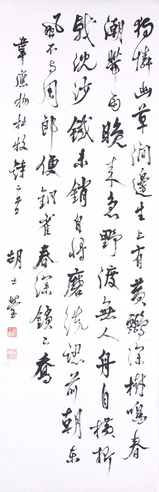 獨憐幽草澗邊生上有黃鸝深樹鳴春
潮帶雨晚來急野渡無人舟自橫折
戟沙沙鐵未銷自將磨洗認前朝東
風不與周郎便銅雀春深鎖二喬
韋應物杜牧詩二首 胡士瑩